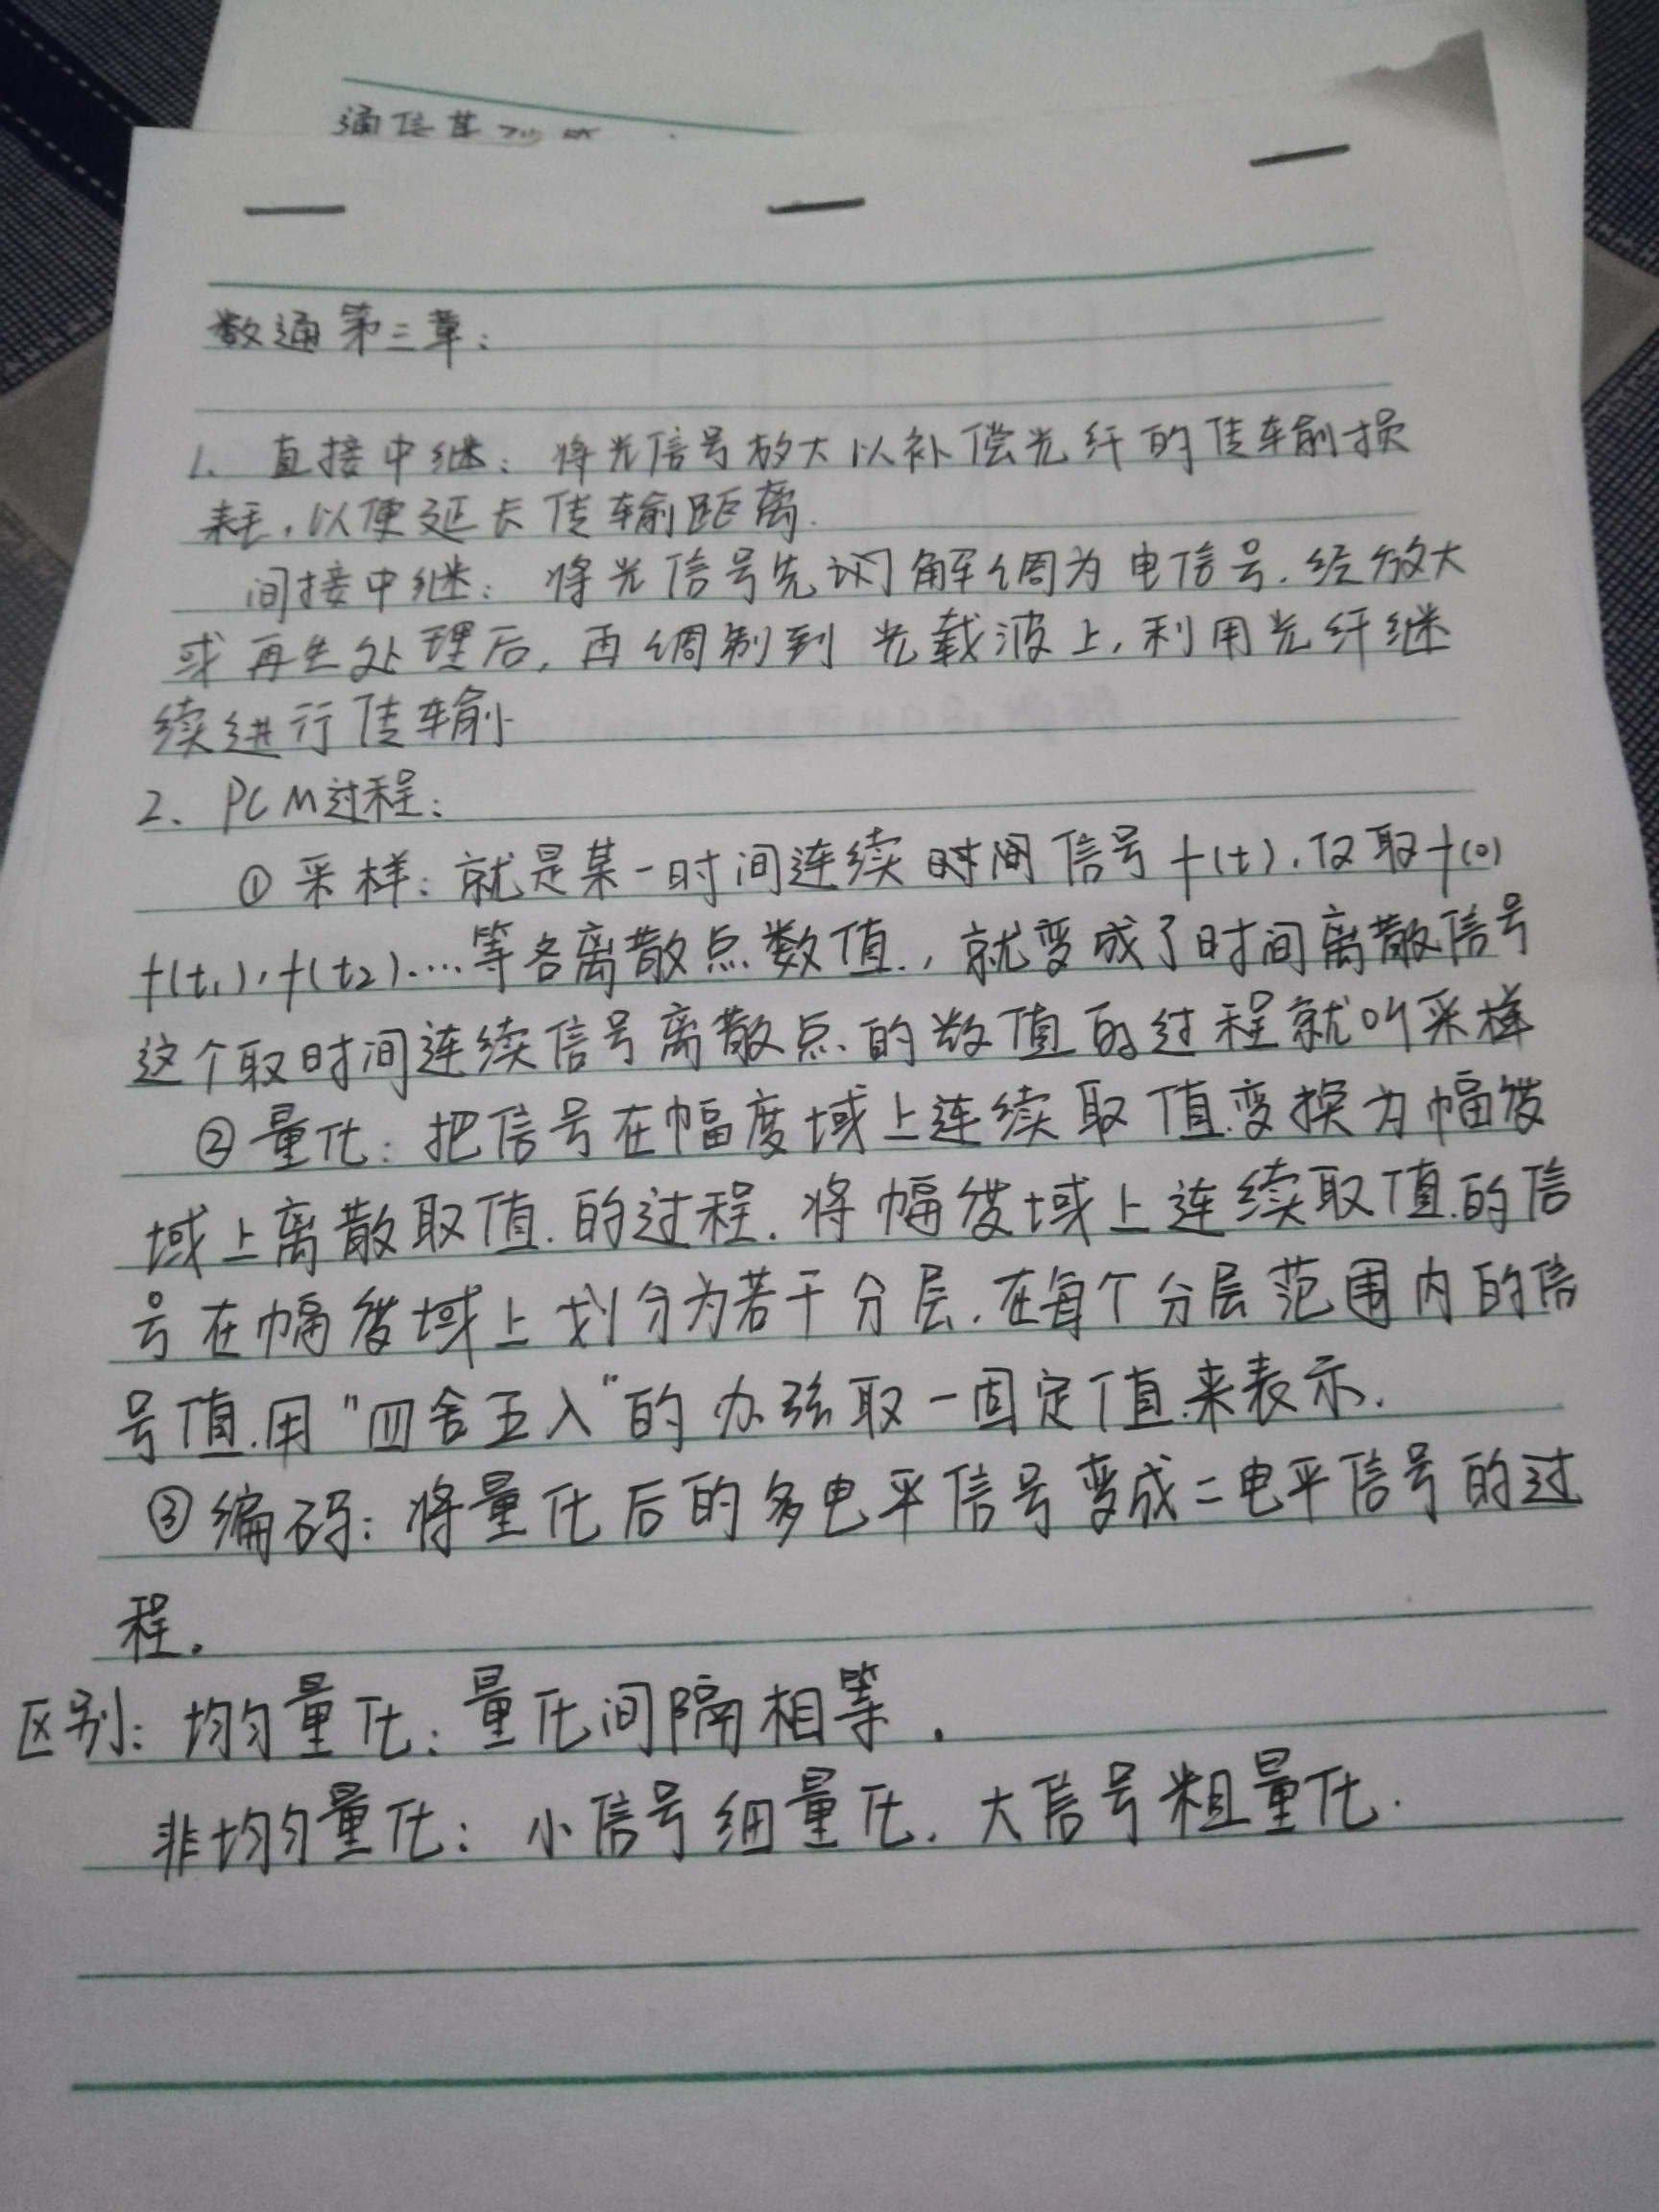 通信基
数通第三章：
1、直接中继：将光信号放大以补偿光纤的传输损
耗，以便延长传输距离.
间接中继：将光信号先解调为电信号.经放大
或再生处理后，再调制到光载波上，利用光纤继
续进行传输
2、PCM过程：
①采样：就是某一时间连续时间信号f(t),仅取f(0)
f(t₁),f(t₂)....等各离散点数值.，就变成了时间离散信号
这个取时间连续信号离散点的数值的过程就叫采样
②量化：把信号在幅度域上连续取值变换为幅度
域上离散取值的过程.将幅度域上连续取值的信
号在幅度域上划分为若干分层.在每个分层范围内的信
号值用"四舍五入"的办法取一固定值来表示.
③编码：将量化后的多电平信号变成二电平信号的过
程.
区别：均匀量化：量化间隔相等.
非均匀量化：小信号细量化.大信号粗量化.